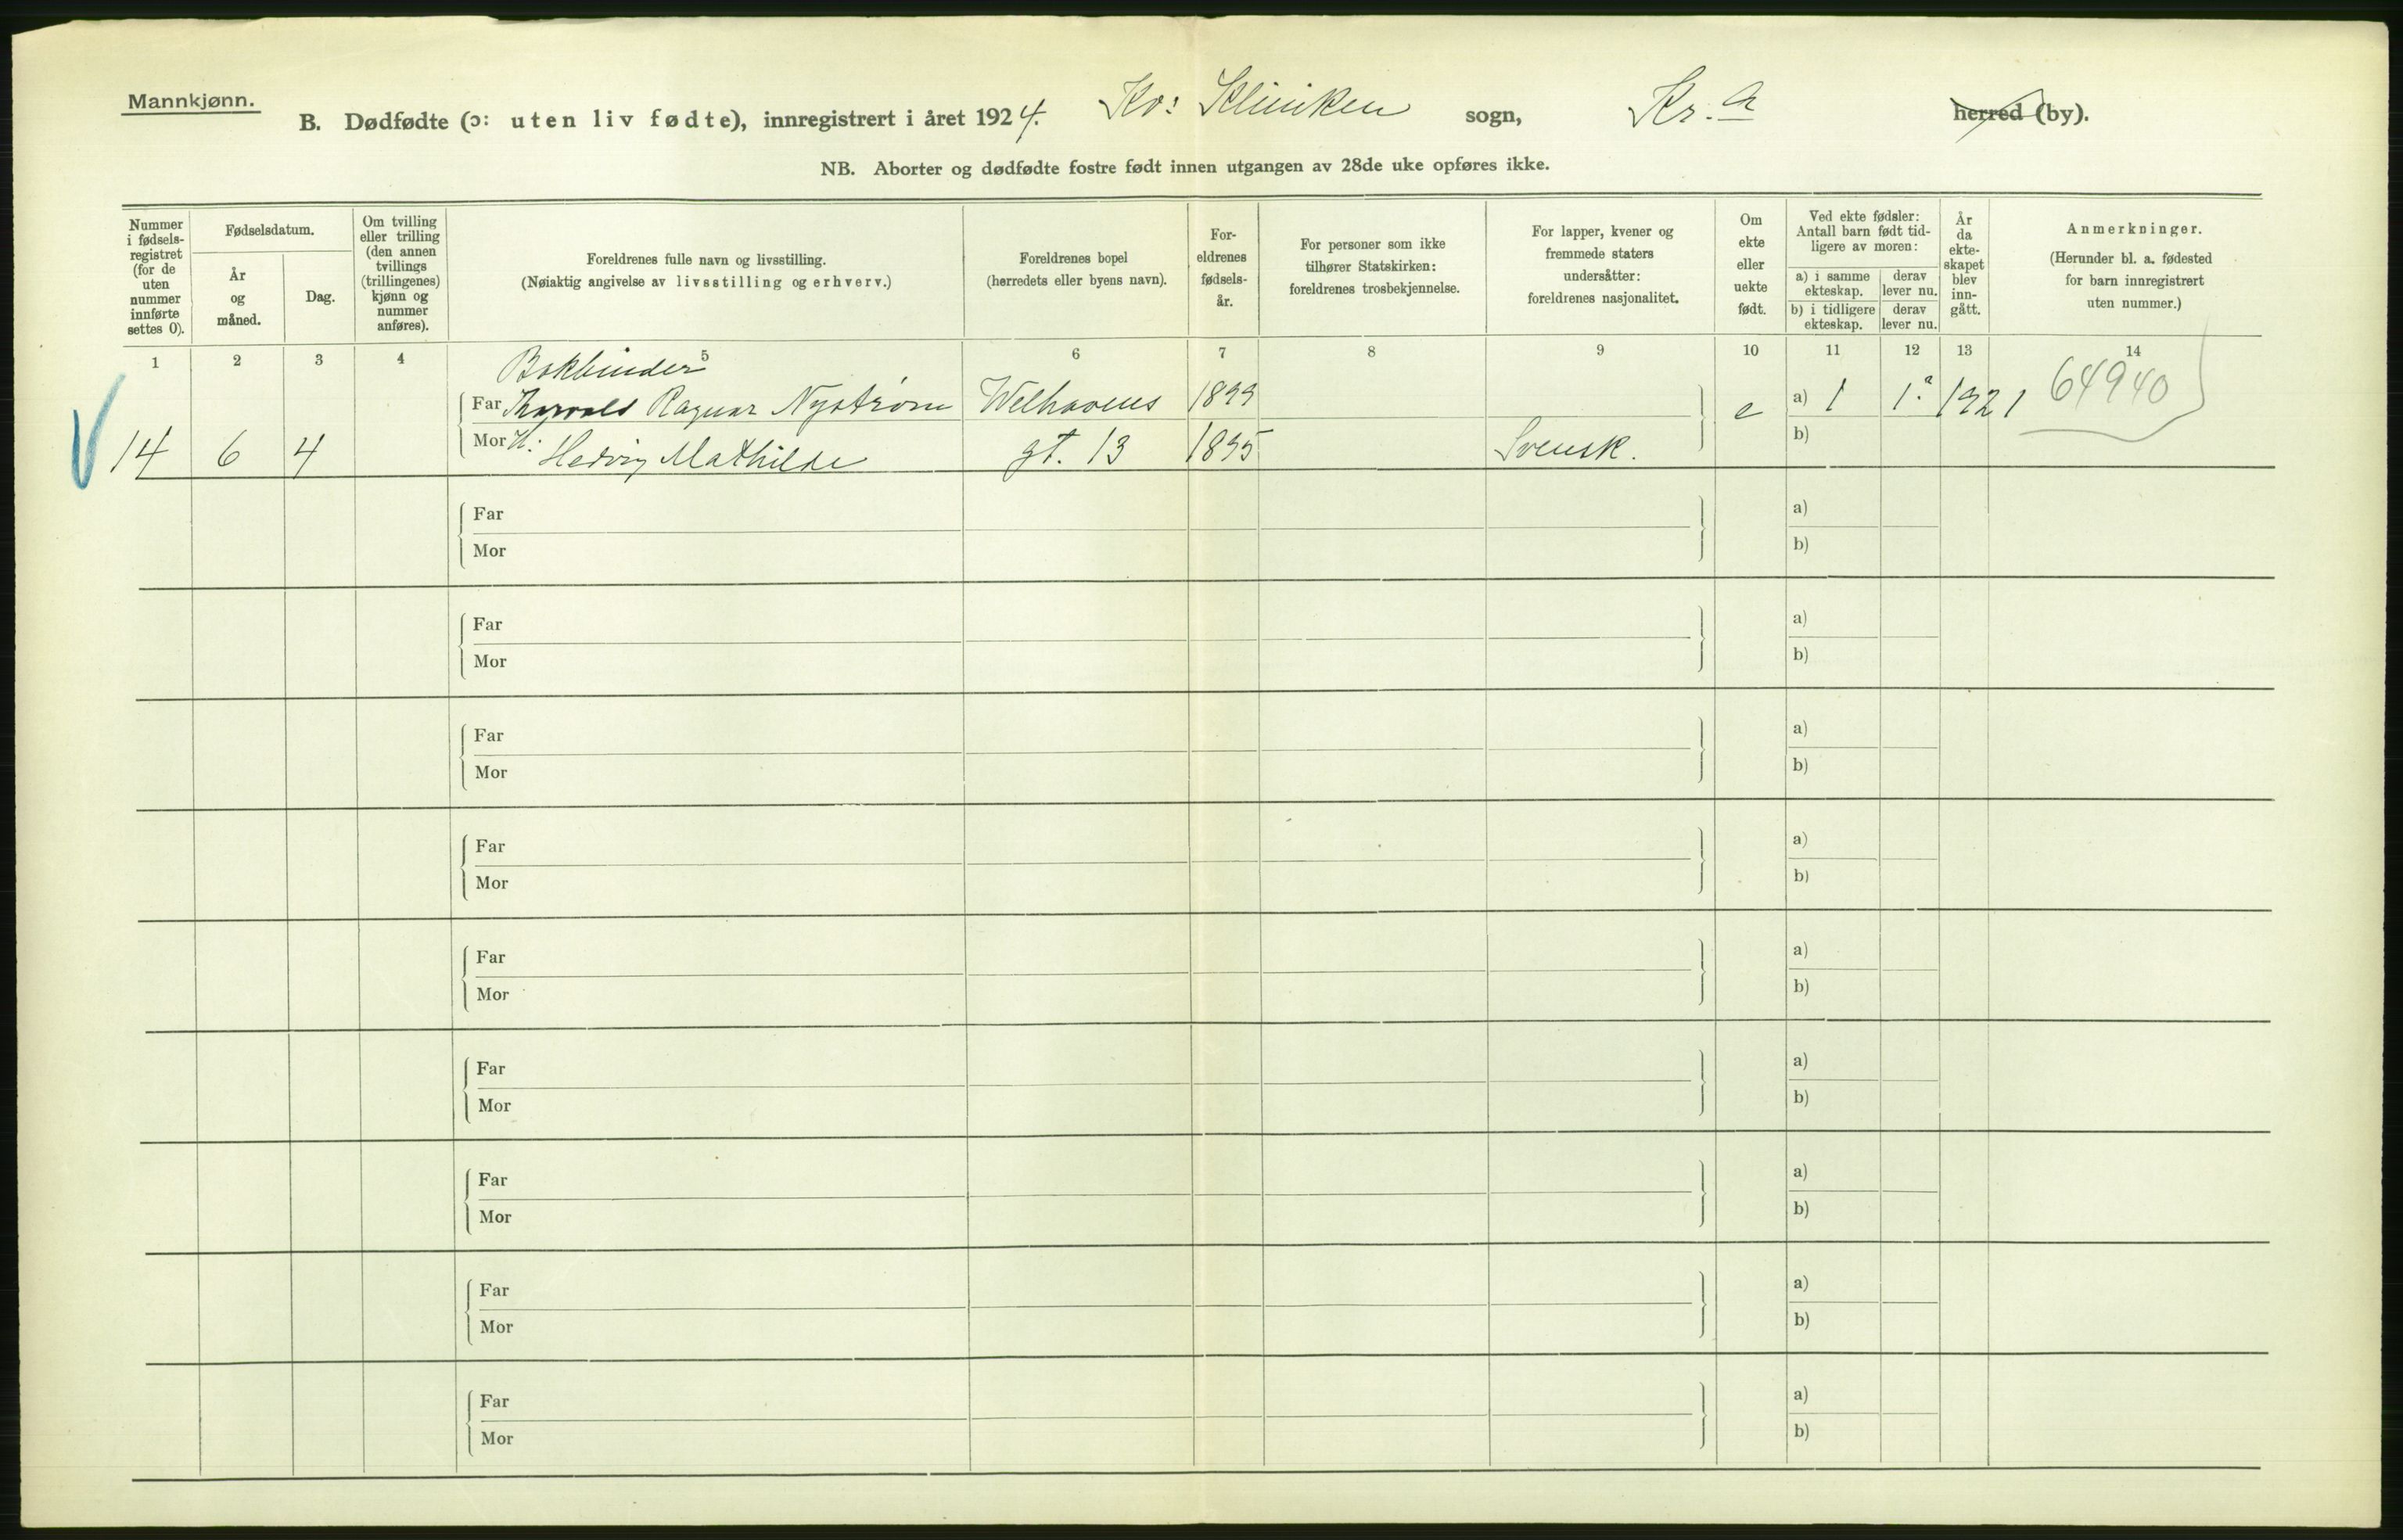 Mannkjønn.
B. Dødfødte (ɔ: uten liv fødte), innregistrert i året 1924. Kv: Kliniken sogn, Kr.a herred (by).
NB. Aborter og dødfødte fostre født innen utgangen av 28de uke opføres ikke.
Nummer
i fødsels-
registret
(for de
uten
nummer
innførte
settes 0).
Fødselsdatum.
År
og
måned.
Dag.
Om tvilling
eller trilling
(den annen
tvillings
(trillingenes)
kjønn og
nummer
anføres).
Foreldrenes fulle navn og livsstilling.
(Nøiaktig angivelse av livsstilling og erhverv.)
Foreldrenes bopel
(herredets eller byens navn).
For-
eldrenes
fødsels-
år.
For personer som ikke
tilhører Statskirken:
foreldrenes trosbekjennelse.
For lapper, kvener og
fremmede staters
undersåtter:
foreldrenes nasjonalitet.
Om
ekte
eller
uekte
født.
Ved ekte fødsler:
Antall barn født tid-
ligere av moren:
a) i samme
ekteskap.
derav
lever nu.
b) i tidligere
ekteskap.
derav
lever nu.
År
da
ekte-
skapet
blev
inn-
gått.
Anmerkninger.
(Herunder bl. a. fødested
for barn innregistrert
uten nummer.)
1 2 3 4 5 6 7 8 9 10 11 12 13 14
Bokbinder
Far Ragnar Nystrøm Welhavens 1899 e a) 1 1? 1921 64940
14 6 4 Mor H. Hedvig Mathilde gt. 13 1895 Svensk. b)
Far a)
Mor b)
Far a)
Mor b)
Far a)
Mor b)
Far a)
Mor b)
Far a)
Mor b)
Far a)
Mor b)
Far a)
Mor b)
Far a)
Mor b)
Far a)
Mor b)